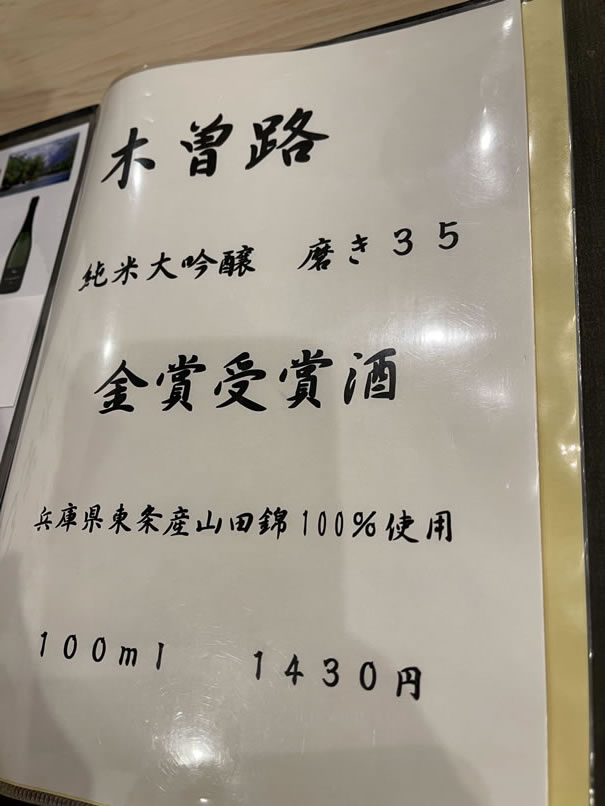 木曽路
純米大吟醸　磨き３５
金賞受賞酒
兵庫県東条産山田錦100％使用
１００ｍｌ　１４３０円